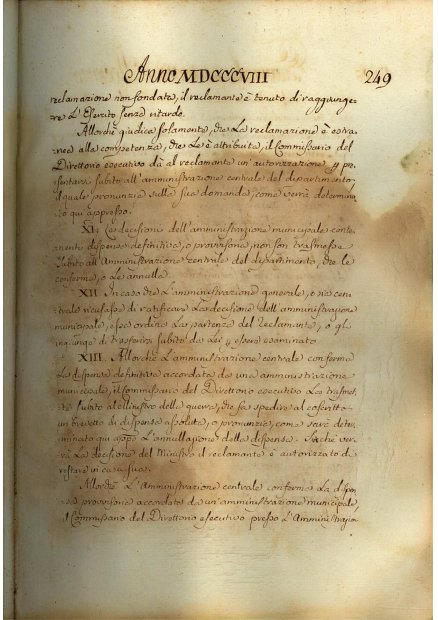 Anno MDCCCVIII 249
reclamazione non fondata, il reclamante è tenuto di raggiunge-
re l'Esercito senza ritardo.
Allorchè giudica solamente, che la reclamazione è estra-
nea alla competenza, che le è attribuita, il Commissario del
Direttorio esecutivo dà al reclamante un'autorizzazione p
presentarsi subito all'amministrazione centrale del dipartimento,
il quale pronunzia sulla sua domanda, come verrà determina-
to qui appresso.
XI. Le decisioni dell'amministrazione municipale conte-
nenti dispensa definitiva, o provvisoria, non son trasmesse
subito all'Amministrazione centrale del dipartimento, che le
conferma, o le annulla.
XII. In caso che l'amministrazione generale, o sia cen-
trale ricusasse di ratificare la decisione dell'amministrazione
municipale, essa ordina la partenza del reclamante, o gl'
ingiunge di trasferirsi subito da lei p essere esaminato.
XIII. Allorchè l'amministrazione centrale conferma
la dispensa definitiva accordata da una amministrazione
municipale, il Commissario del Direttorio esecutivo la trasmet-
te subito al Ministro della guerra, che fa spedire al coscritto
un brevetto di dispensa assoluta, o pronunzia, come sarà deter-
minato qui appo l'annullazione della dispensa. Finchè ver-
rà la decisione del Ministro il reclamante è autorizzato di
restare in casa sua.
Allorchè l'Amministrazione centrale conferma la dispen-
sa provvisoria accordata da un'amministrazione municipale,
il Commissario del Direttorio esecutivo presso l'Amministrazio-